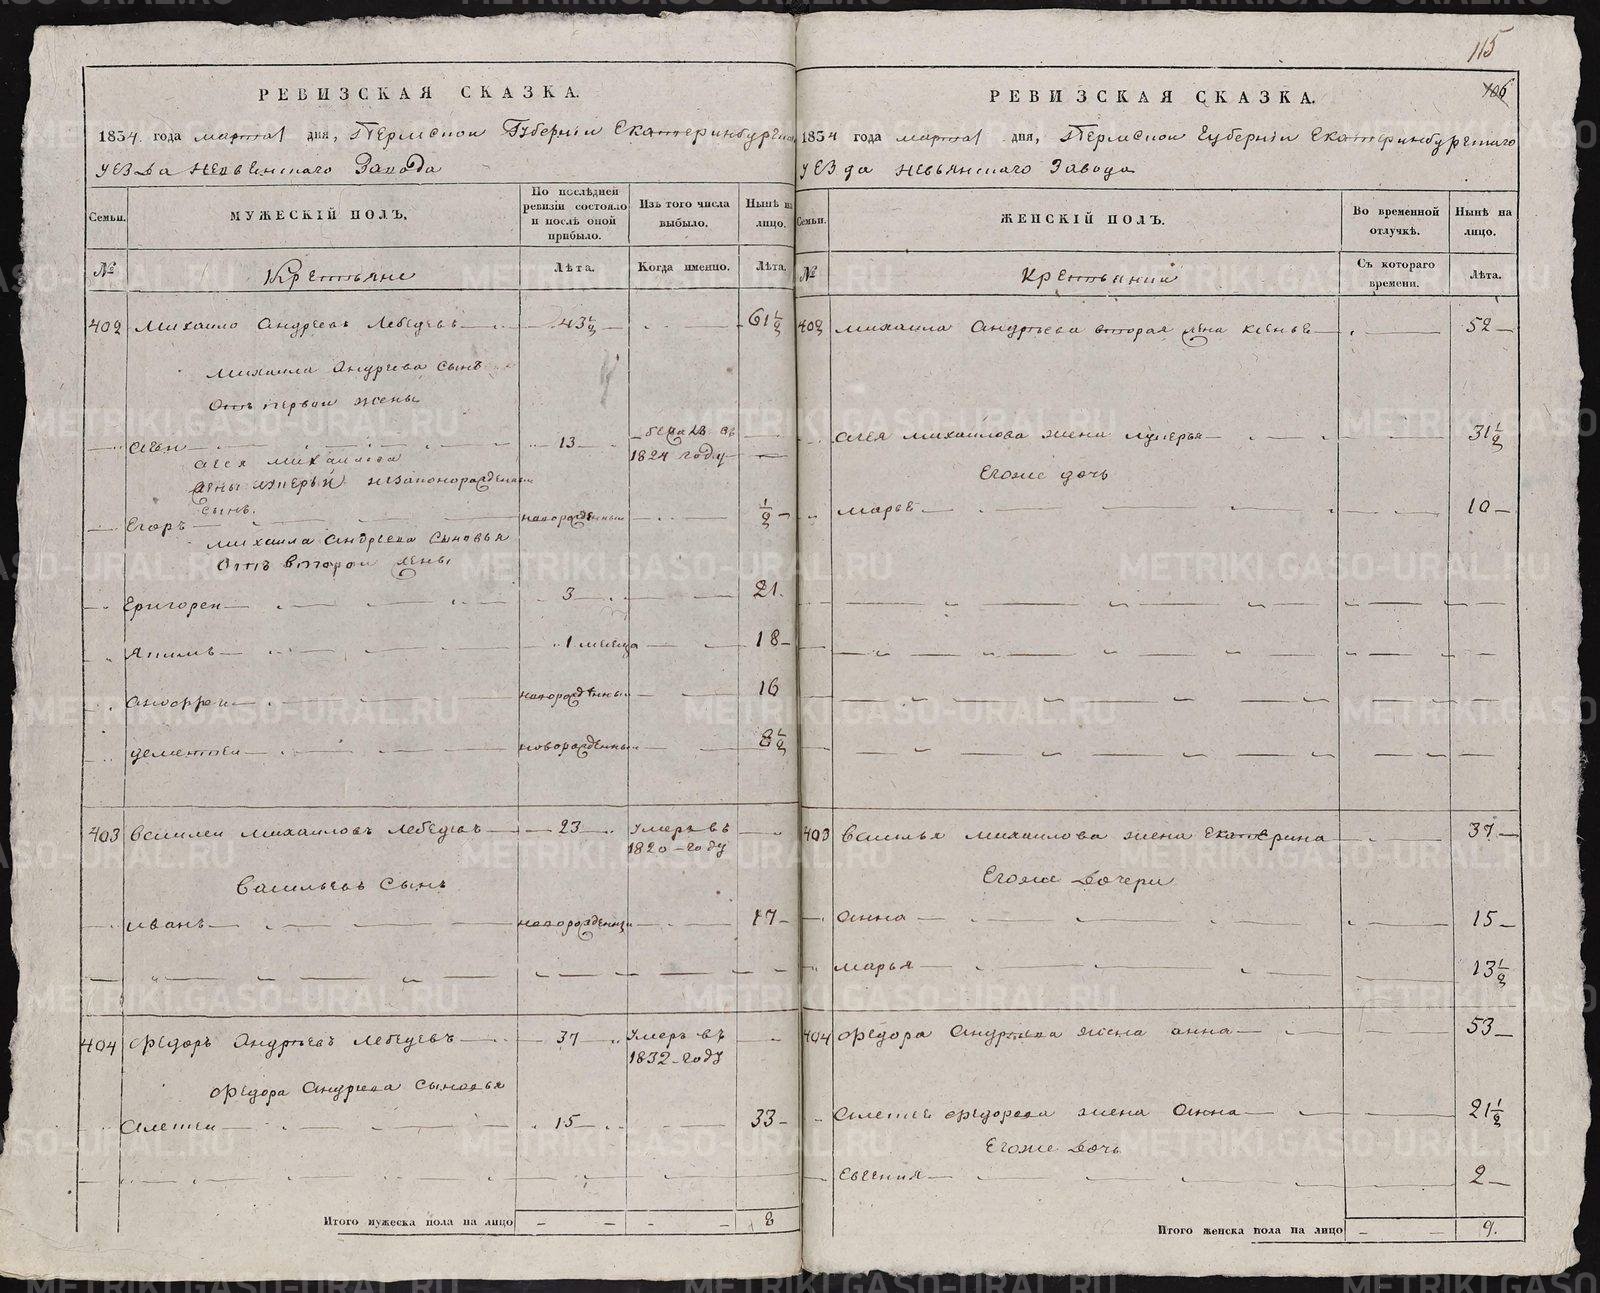 115
РЕВИЗСКАЯ СКАЗКА.
1834 года марта 1 дня, Пермской Губернiи Екатеринбургскаго
уезда невьянскаго Завода
Семьи.
МУЖЕСКIЙ ПОЛЪ.
По послѣдней ревизiи состояло и послѣ оной прибыло.
Изъ того числа выбыло.
Нынѣ на лицо.
№
Крестьяне
Лѣта.
Когда именно.
Лѣта.
402 Михаило Андреевъ Лебедевъ 43½ 61½
Михаила Андреева сынъ
Отъ первой жены
13 бежалъ въ
1824 году
Михайлова
жены незаконорожденной
сынъ.
Егоръ новорожденный ½
Михаила Андреева сыновья
Отъ второй жены
Григорей 3 21
Якимъ 1 месеца 18
Андреи новорожденный 16
дементеи новорожденный 8½
403 Василеи михаиловъ лебедевъ 23 Умеръ въ
1820 году
Васильевъ сынъ
иванъ новорожденный 17
404 Федоръ Андреевъ лебедевъ 37 Умеръ въ
1832 году
Федора Андреева сыновья
Алексеи 15 33
Итого мужеска пола на лицо 8
106
РЕВИЗСКАЯ СКАЗКА.
1834 года марта 1 дня, Пермской Губернiи Екатеринбургскаго
уезда невьянскаго Завода
Семьи.
ЖЕНСКIЙ ПОЛЪ.
Во временной отлучкѣ.
Нынѣ на лицо.
№
Крестьянки
Съ котораго времени.
Лѣта.
402 михаила Андреева вторая жена 52
михаилова жена 31½
Егоже дочь
марья 10
403 Василья михаилова жена Екатерина 37
Егоже дочери
Анна 15
марья 13½
404 Федора Андреева жена анна 53
Алексея федорова жена Анна 21½
Егоже дочь
Евгения 2
Итого женска пола на лицо 9.
METRIKI.GASO-URAL.RU